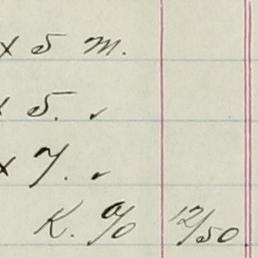 x 5 m.
x 5. "
x 7. "
K. % 12/50